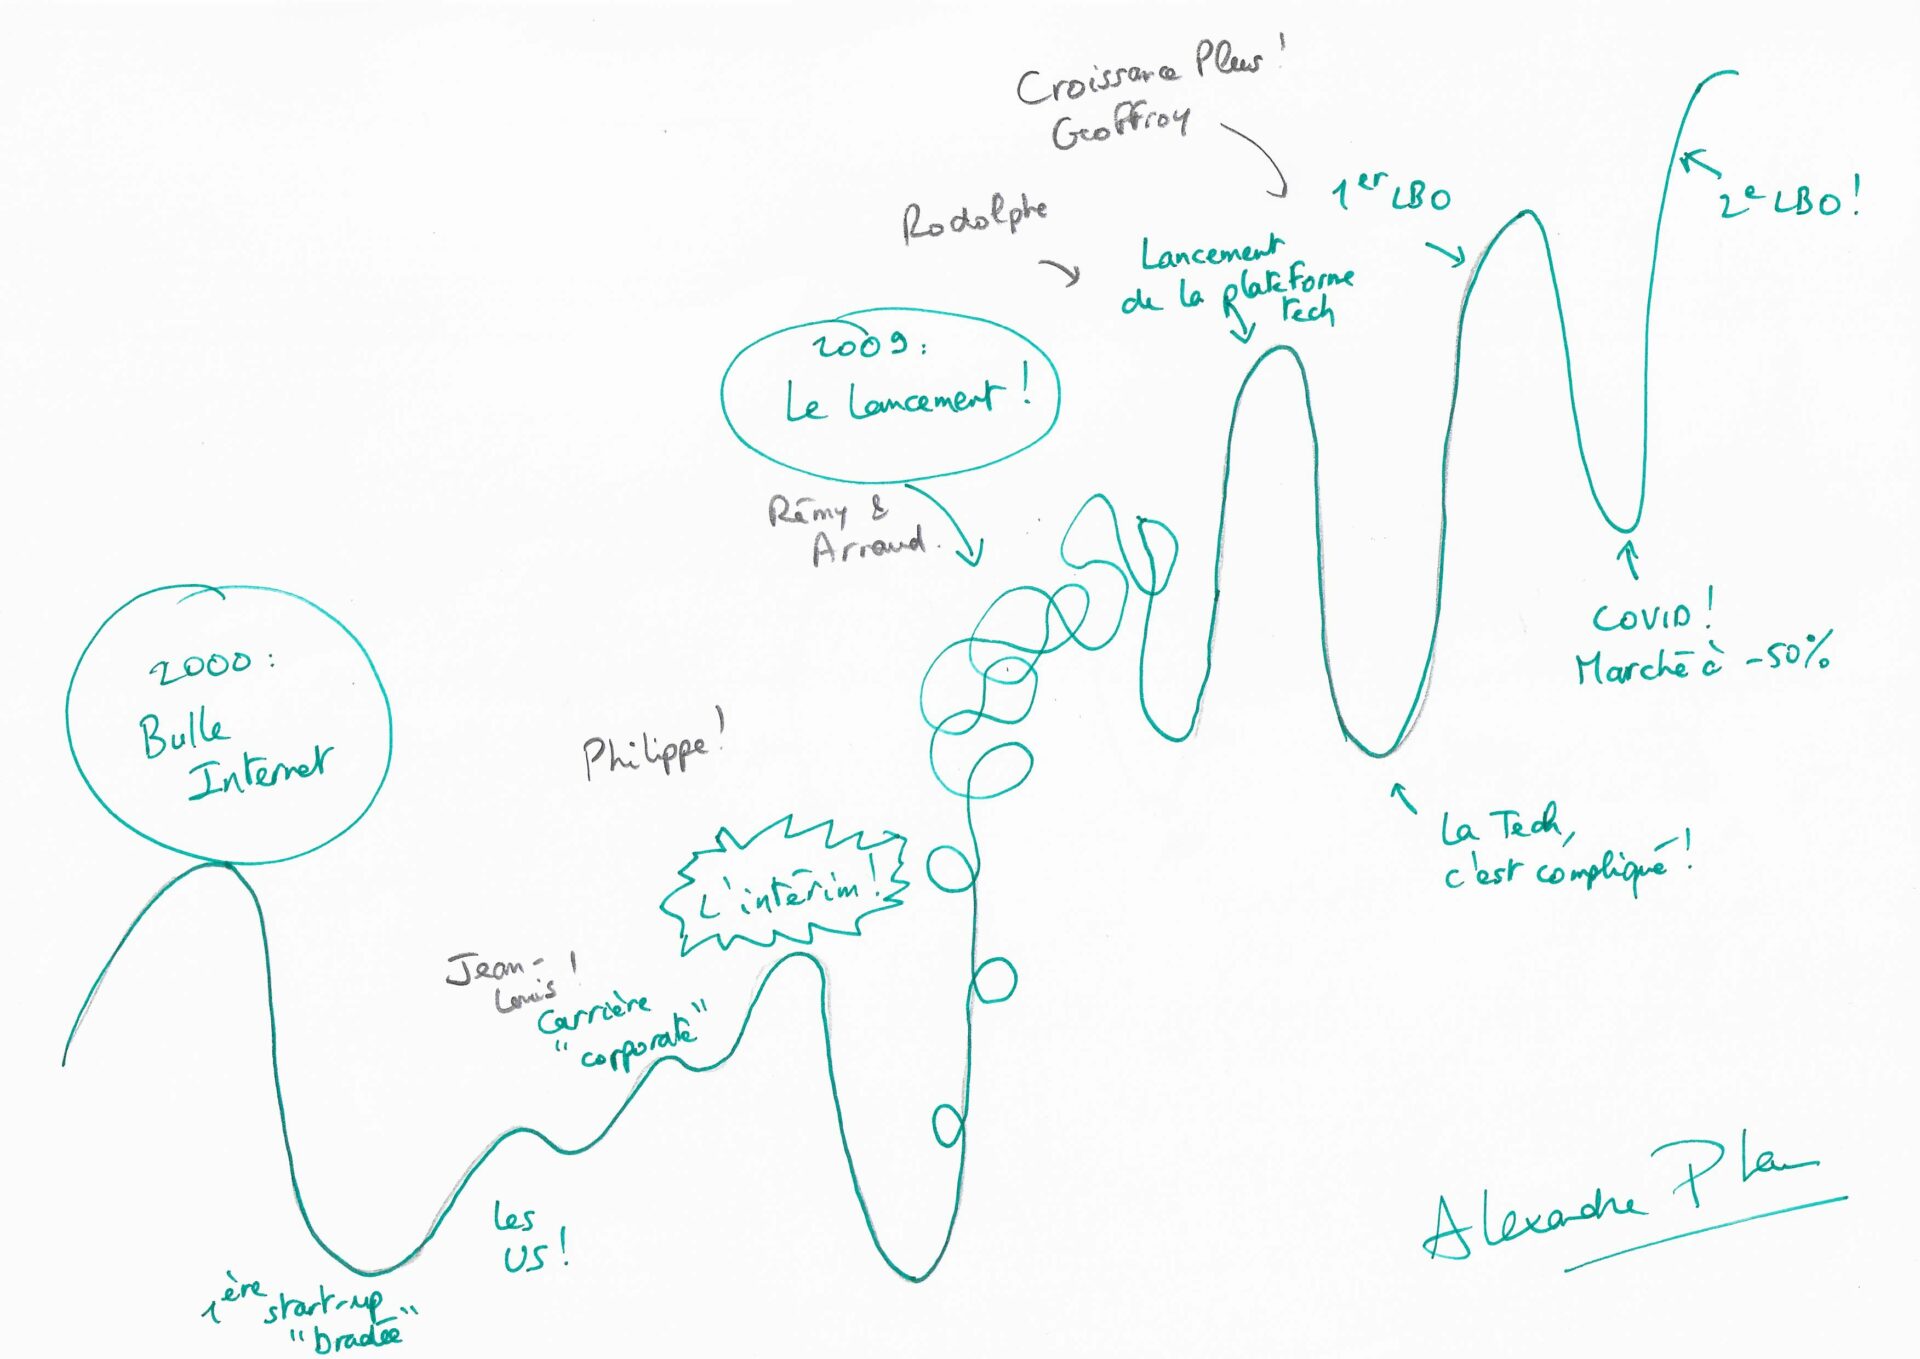 2000 :
Bulle
Internet
1ère start-up
"bradée"
Les
US !
Jean-
Louis !
Carrière
"corporate"
Philippe !
L'intérim !
2009 :
Le Lancement !
Rémy &
Arnaud.
Rodolphe
Croissance Plus !
Geoffroy
Lancement
de la plateforme
tech
La Tech,
c'est compliqué !
1er LBO
COVID !
Marché à -50%
2e LBO !
Alexandre